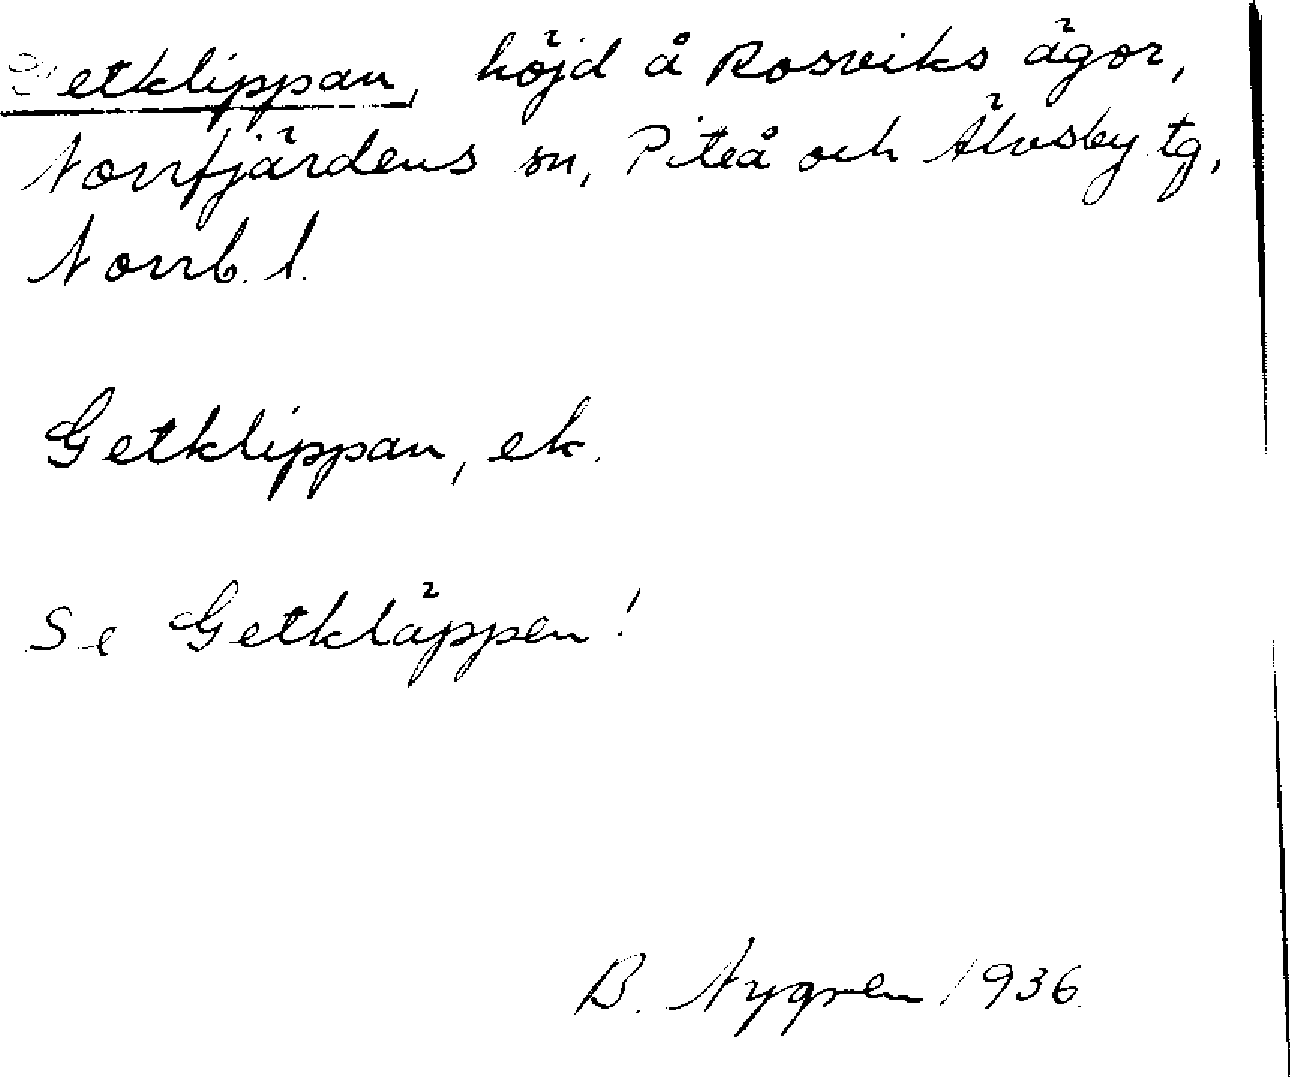 Getklippan, höjd å Rosviks ägor,
Norrfjärdens sn, Piteå och Älvsby tg,
Norrb. l.
Getklippan, ek.
Se Getkläppen!
B. Nygren 1936